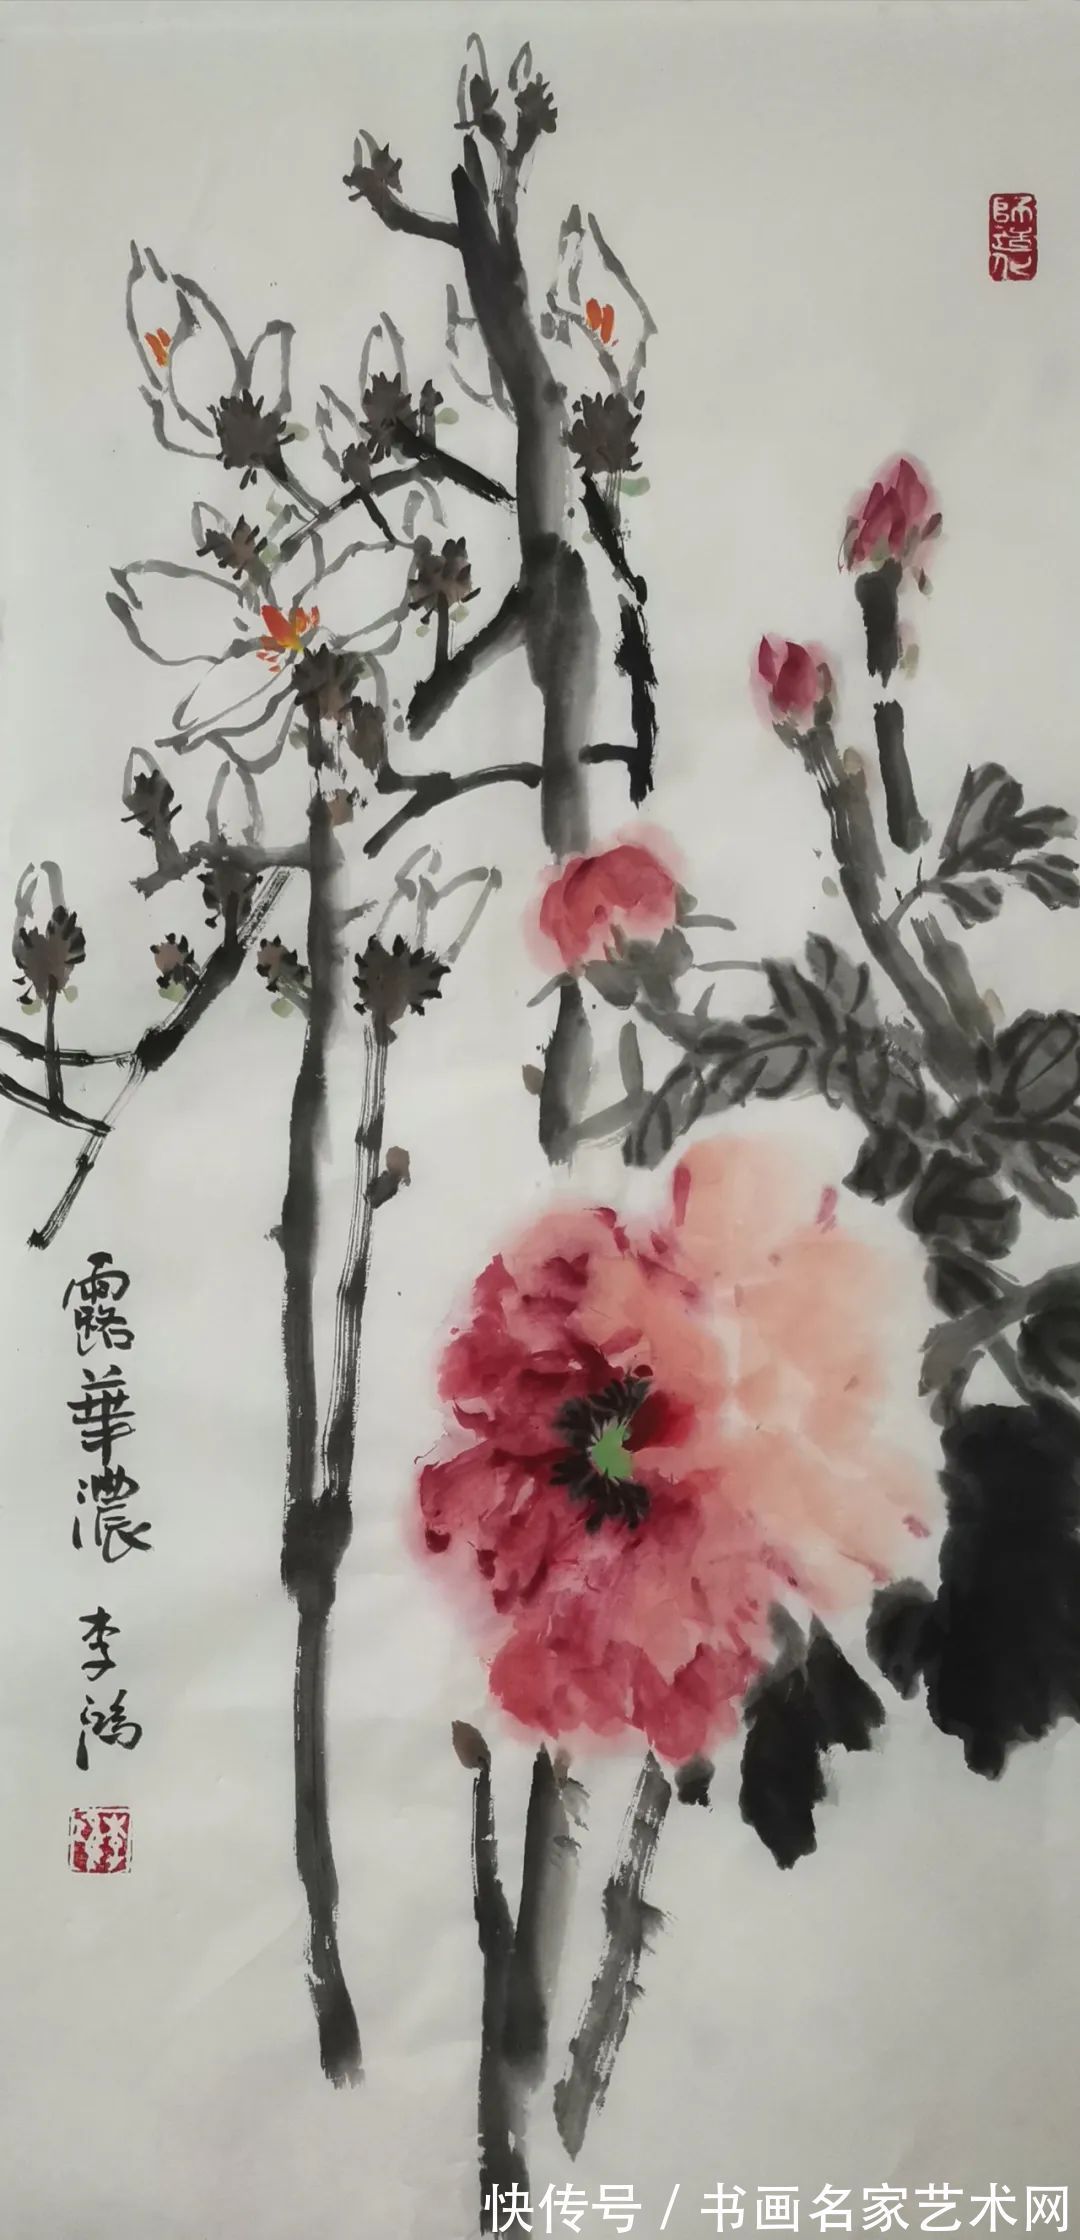 師造化
露華濃
李鴻
快传号 / 书画名家艺术网